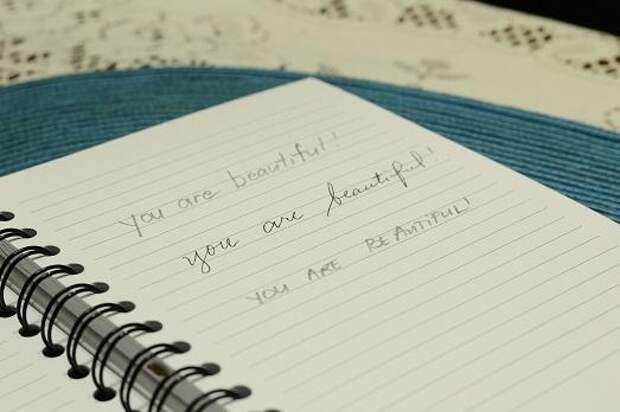 you are beautiful!
you are beautiful!
YOU ARE BEAUTIFUL!